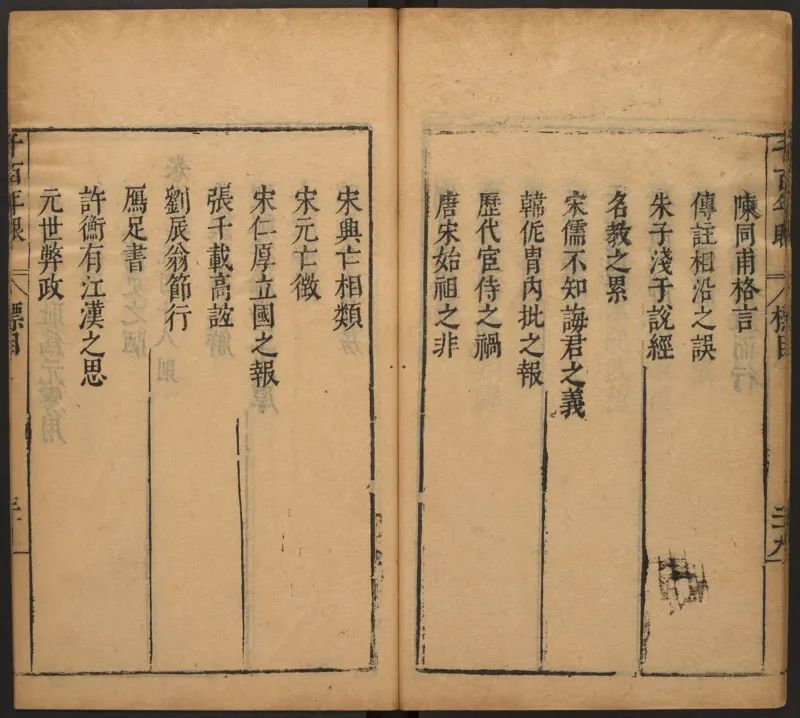 千百年眼
標目
二十九
陳同甫格言
傳註相沿之誤
朱子淺于說經
名教之累
宋儒不知誨君之義
韓侂胄內批之報
歷代宦侍之禍
唐宋始祖之非
宋興亡相類
宋元亡徵
宋仁厚立國之報
張千載高誼
劉辰翁節行
鴈足書
許衡有江漢之思
元世弊政
千百年眼
標目
三十